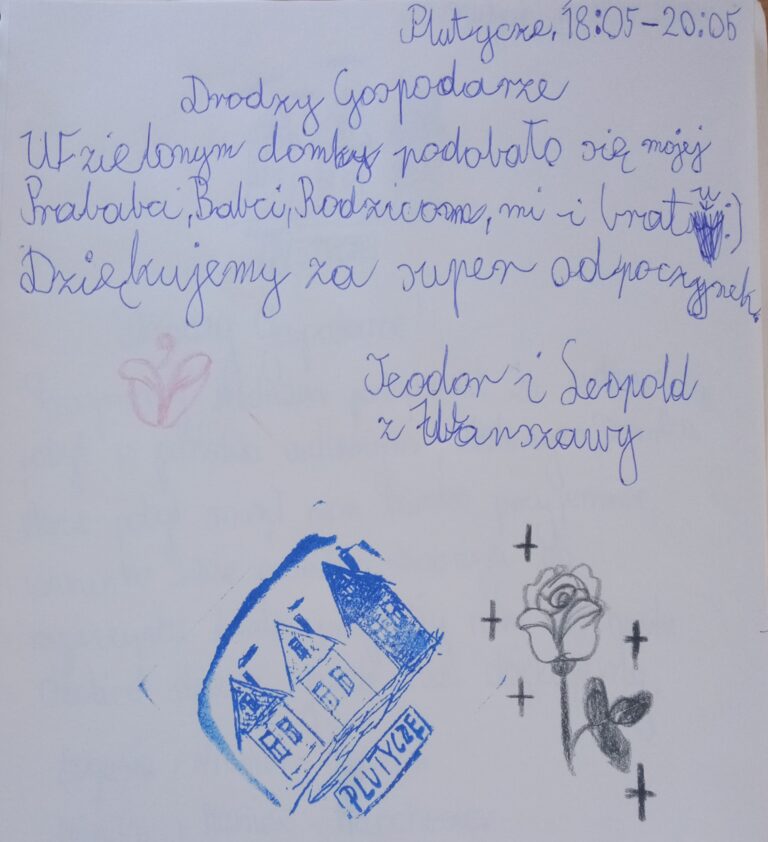 Plutycze, 18:05-20:05
Drodzy Gospodarze
W zielonym domku podobało się mojej
Prababci, Babci, Rodzicom, mi i bratu :)
Dziękujemy za super odpoczynek.
Teodor i Leopold
z Warszawy
PLUTYCZE